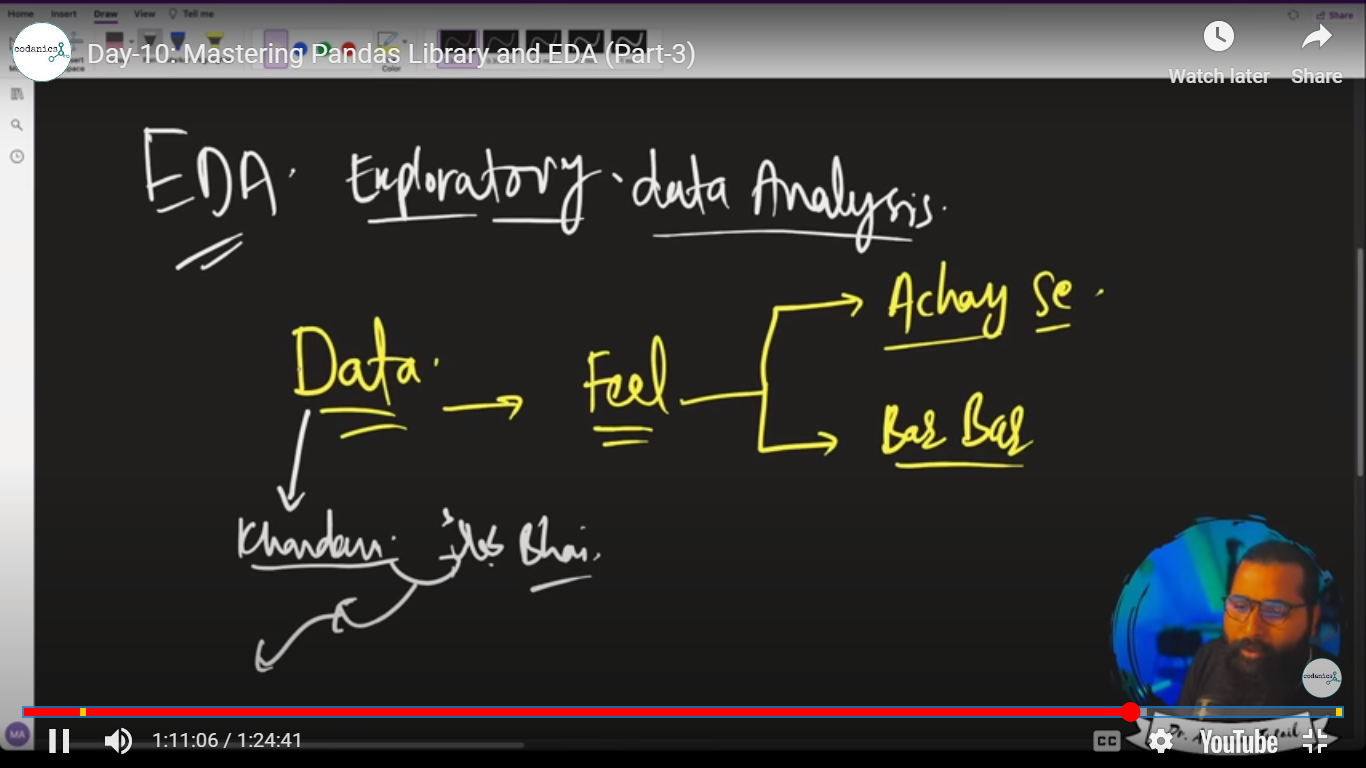 Home Insert Draw View Tell me
Share
codanics
Day-10: Mastering Pandas Library and EDA (Part-3)
Color
Watch later Share
EDA. Exploratory data Analysis.
Achay Se.
Data. Feel
Bar Bar
Khandani. Bhai.
codanics
MA
1:11:06 / 1:24:41
CC
YouTube
Dr.